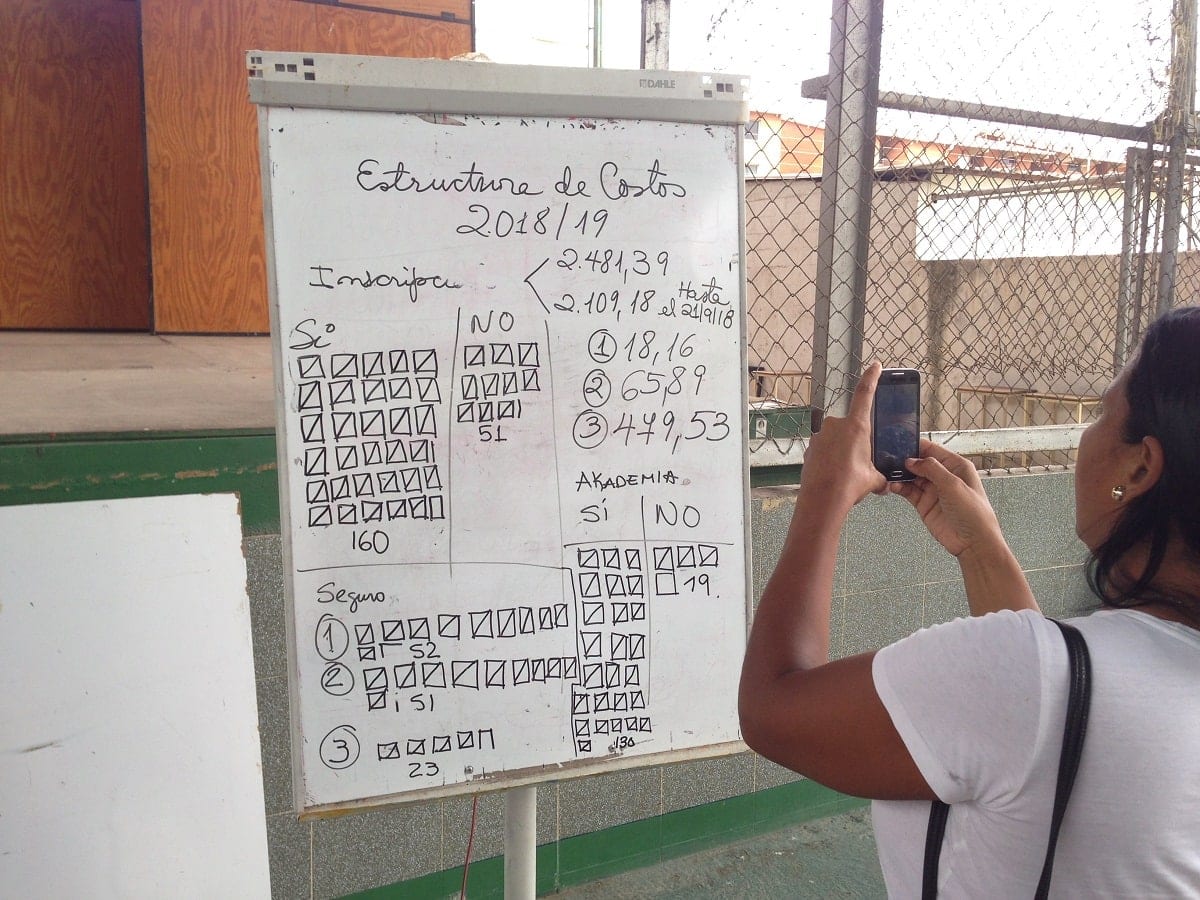 DAHLE
Estructura de Costos
2018/19
2.481,39
2.109,18 Hasta el 21/9/18
Sí
NO
① 18,16
② 65,89
③ 479,53
51
160
AKADEMIA
SI NO
19.
130
Seguro
①
52
②
51
③
23